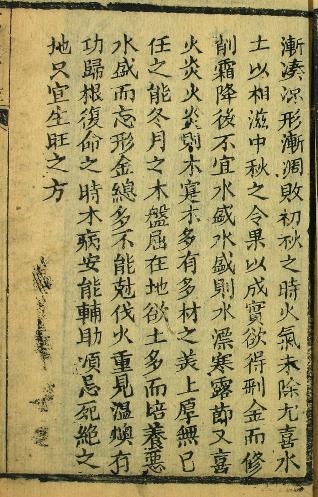 漸凑淒形漸凋敗初秋之時火氣未除尤喜水
土以相滋中秋之令果以成實欲得剛金而修
削霜降後不宜水盛水盛則水漂寒露節又喜
火炎火炎則木實木多有多材之美上厚無已
任之能冬月之木盤屈在地欲土多而培養惡
水盛而忘形金總多不能尅伐火重見溫燠有
功歸根復命之時木病安能輔助須忌死絕之
地只宜生旺之方